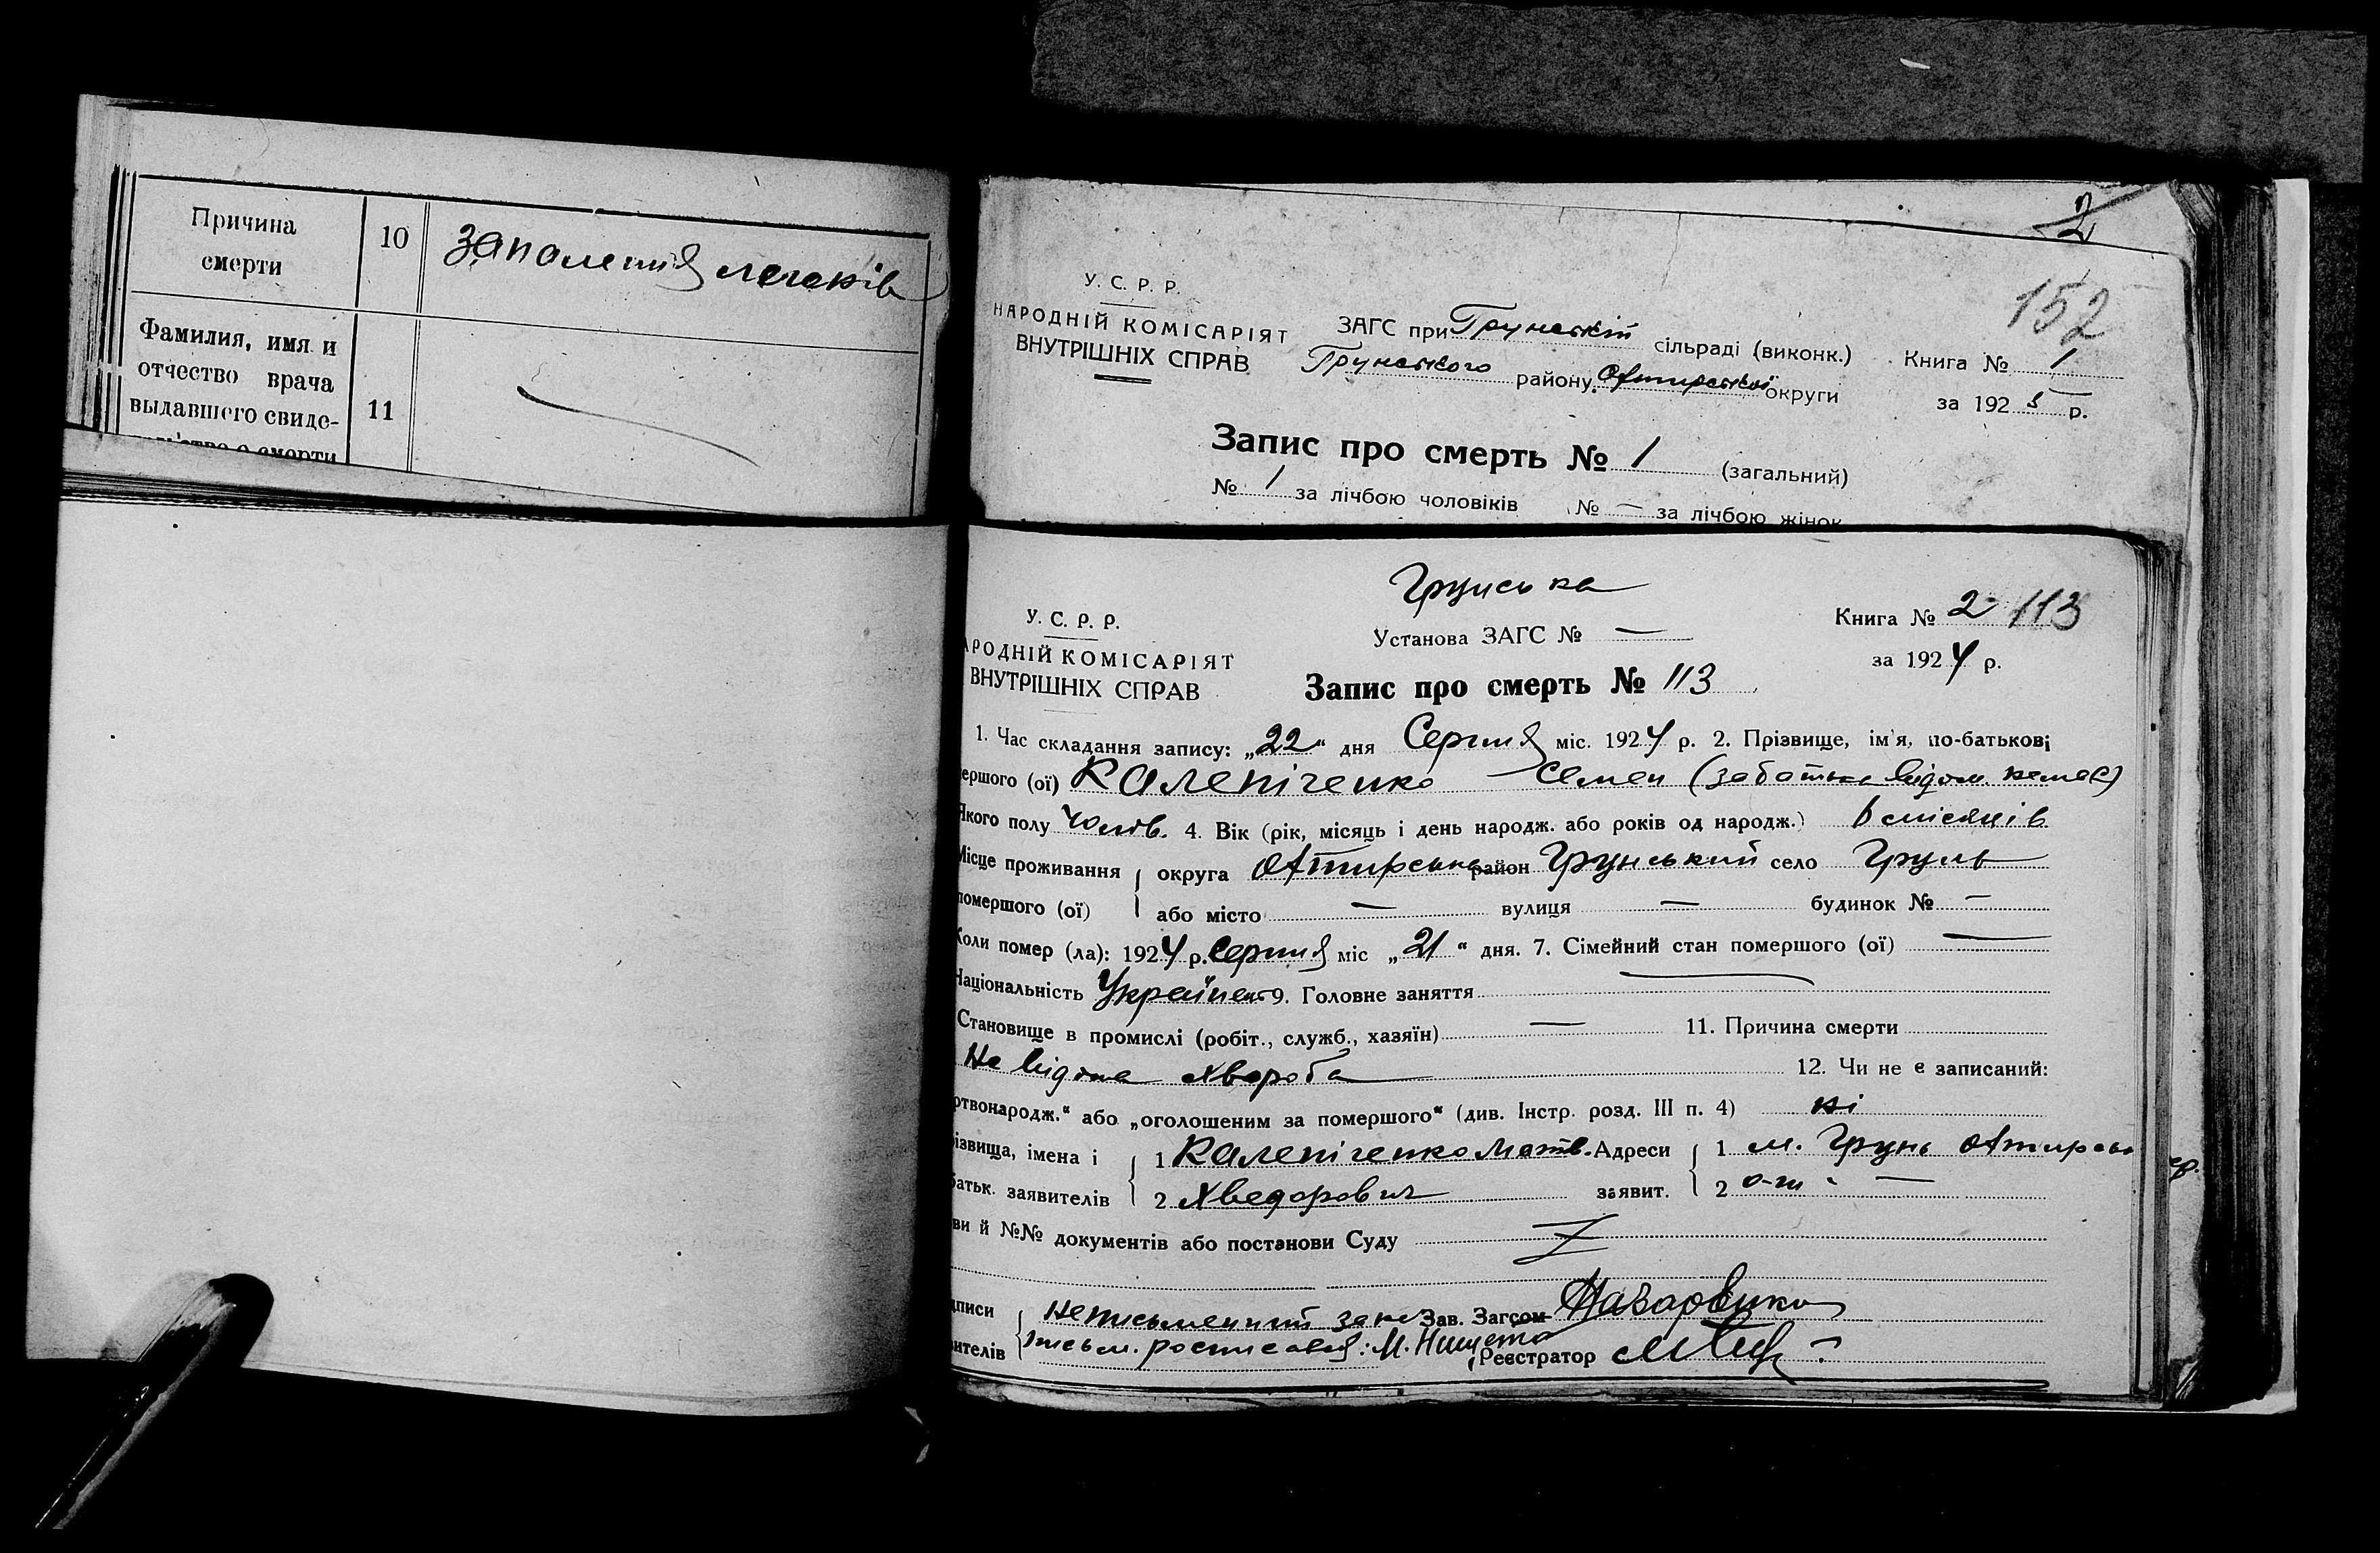 Причина
смерти
10
запаления легоків
Фамилия, имя и
отчество врача
выдавшего свиде-
11
о смерти
2
152
У. С. Р. Р.
НАРОДНІЙ КОМІСАРІЯТ
ВНУТРІШНІХ СПРАВ
ЗАГС при Грунській сільраді (виконк.)
Грунського району Охтирської округи
Книга № 1
за 192 5 р.
Запис про смерть № 1 (загальний)
№ 1 за лічбою чоловіків № — за лічбою жінок
Грунська
У. С. Р. Р.
АРОДНІЙ КОМІСАРІЯТ
ВНУТРІШНІХ СПРАВ
Установа ЗАГС № —
Книга № 2 113
за 1924 р.
Запис про смерть № 113
1. Час складання запису: „22“ дня Серпня міс. 1924 р. 2. Прізвище, ім'я, по-батькові
ершого (ої) Калепіченко Семен (за батька відом. немає)
Якого полу чолов. 4. Вік (рік, місяць і день народж. або років од народж.) 6 місяців
Місце проживання округа Охтирська район Грунський село Грунь
помершого (ої) або місто — вулиця — будинок № —
Коли помер (ла): 1924 р. Серпня міс „21“ дня. 7. Сімейний стан помершого (ої) —
Національність Українець 9. Головне заняття —
Становище в промислі (робіт., служб., хазяїн) — 11. Причина смерти
Не відома хвороба 12. Чи не є записаний:
ртвонародж.“ або „оголошеним за помершого“ (див. Інстр. розд. III п. 4) ні
ізвища, імена і 1 Калепіченко Матв. Адреси 1 м. Грунь Охтирськ
батьк. заявителів 2 Хведорович заявит. 2 о-ги —
ви й №№ документів або постанови Суду
дписи неписьменний за не Зав. Загсом Назаренко
вителів письм. росписався: М. Нищета Реєстратор